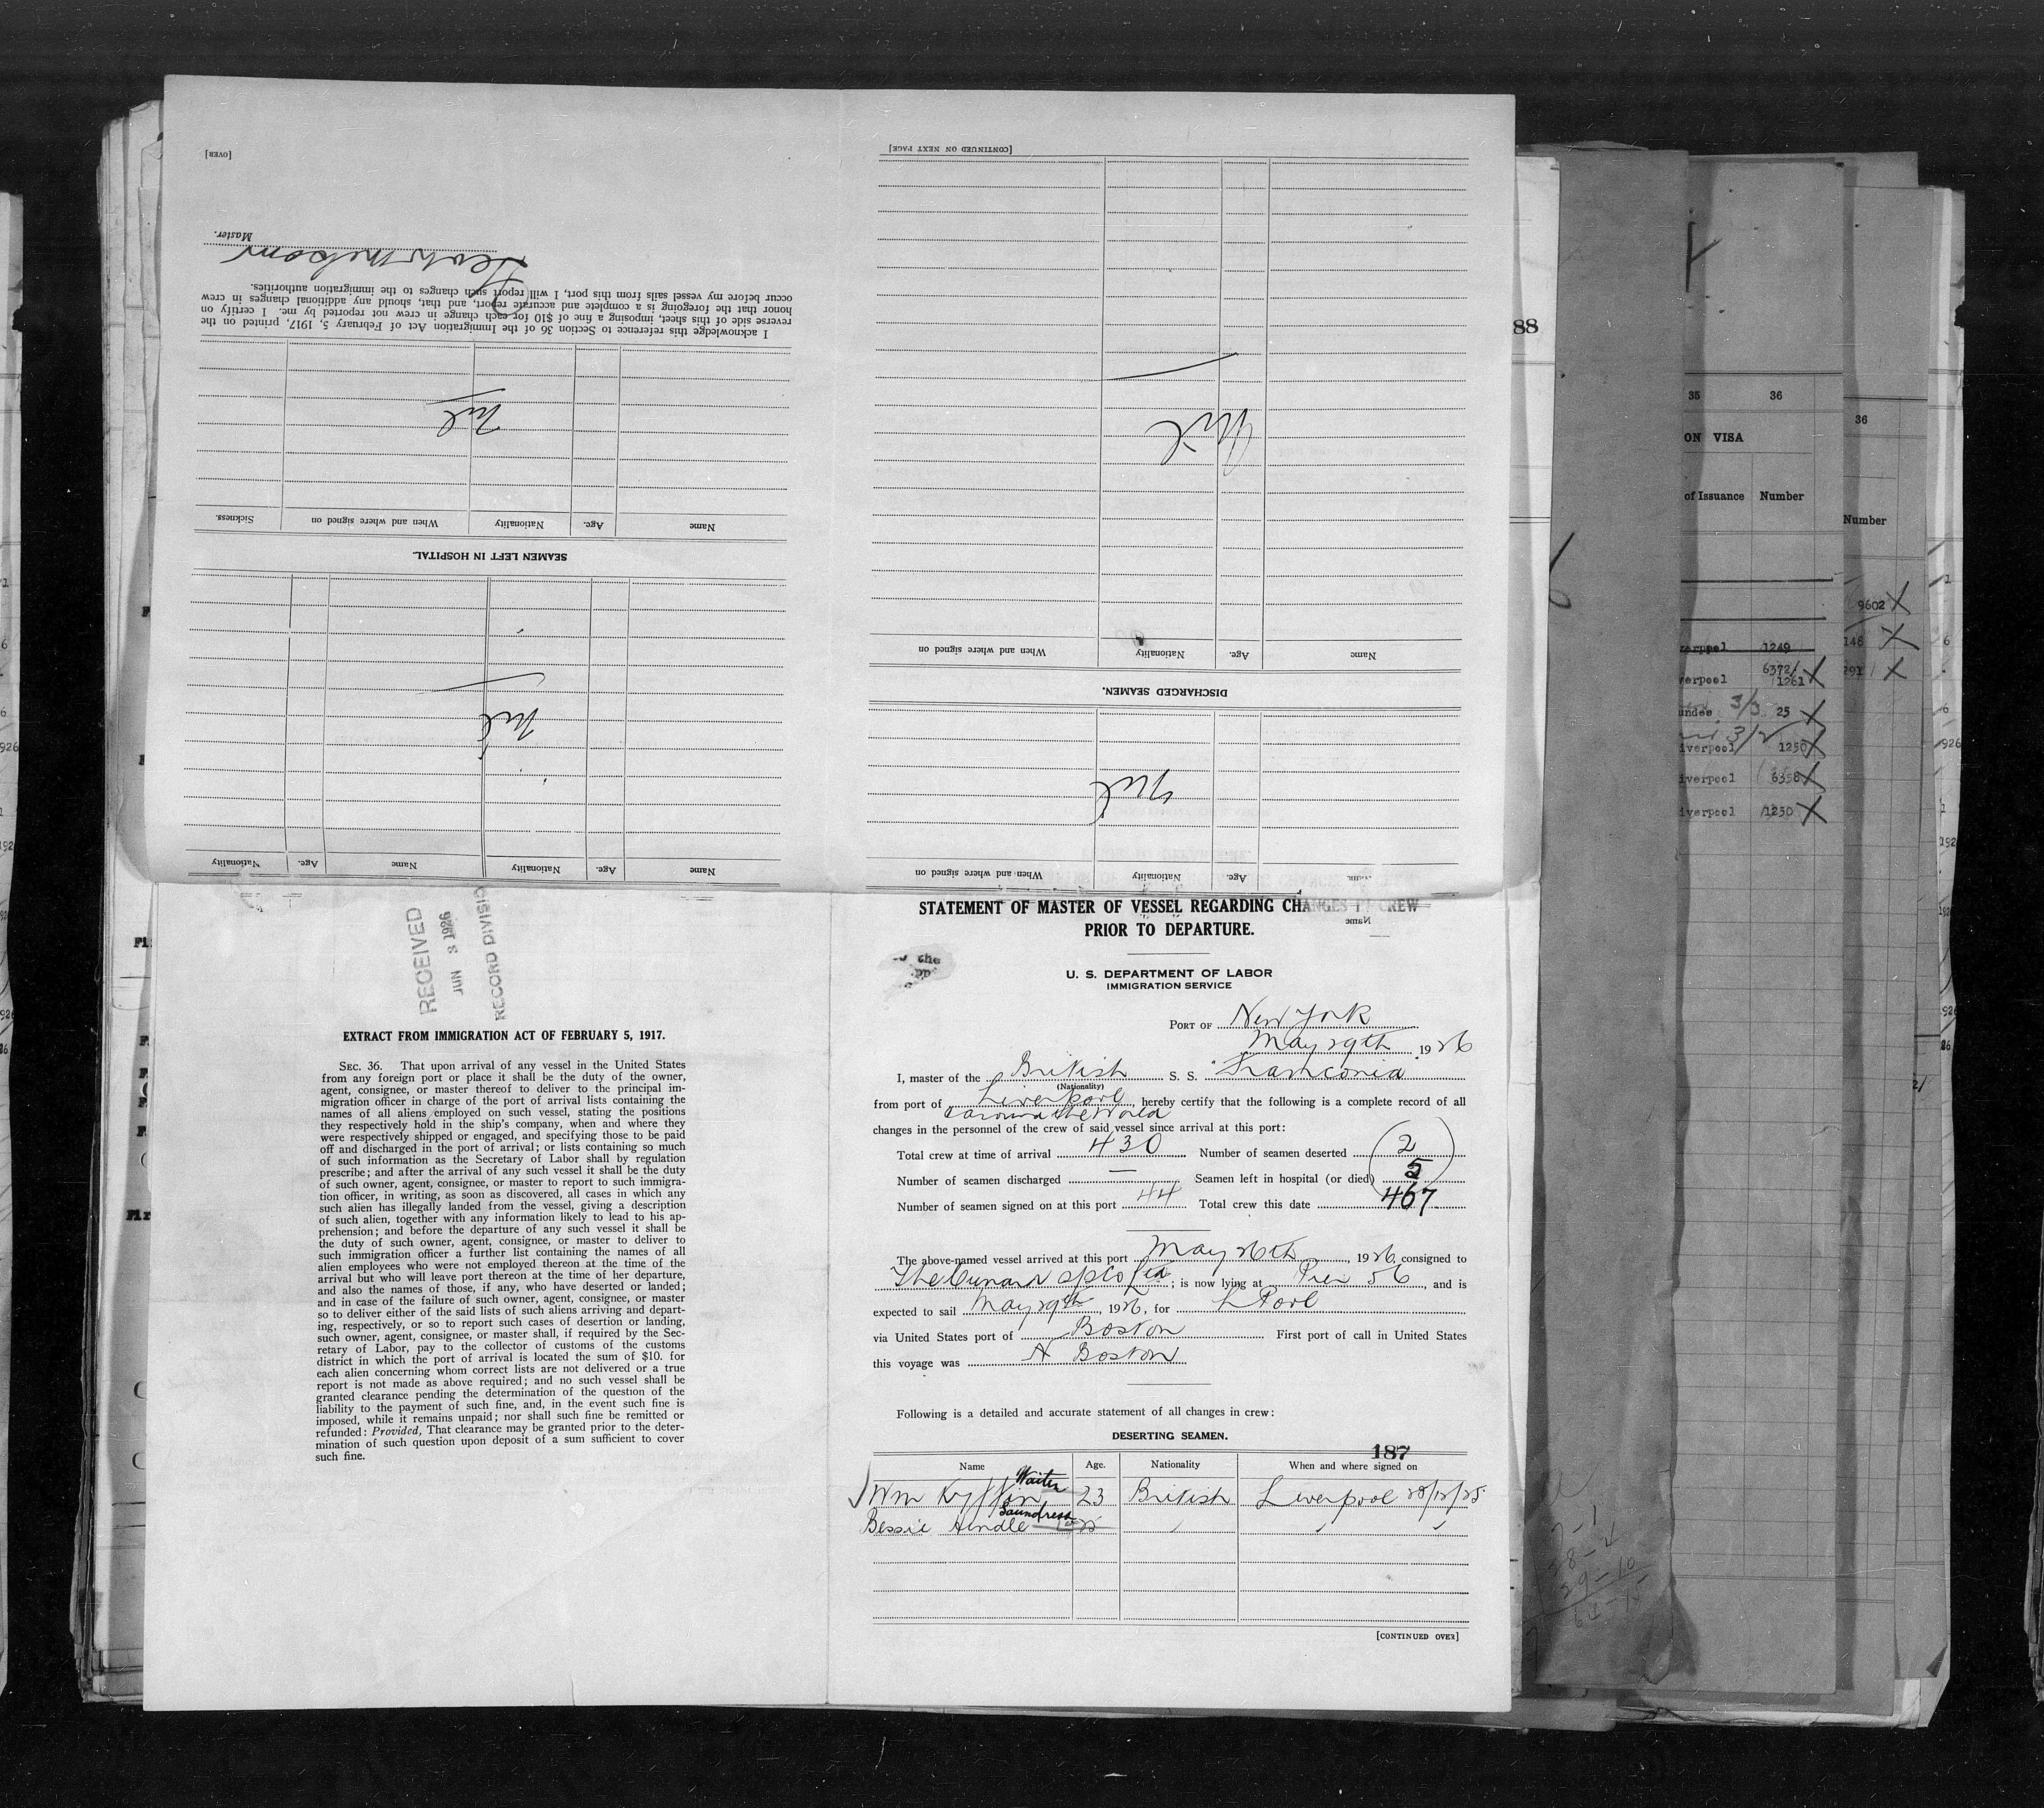 STATEMENT OF MASTER OF VESSEL REGARDING CHANGES IN CREW
PRIOR TO DEPARTURE.
U. S. DEPARTMENT OF LABOR
IMMIGRATION SERVICE
PORT OF New York
May 29th 1926
I, master of the British S. S. "Franconia
(Nationality)
from port of Liverpool, hereby certify that the following is a complete record of all
& around the World
changes in the personnel of the crew of said vessel since arrival at this port:
Total crew at time of arrival 430 Number of seamen deserted 2
Number of seamen discharged — Seamen left in hospital (or died) 5
Number of seamen signed on at this port 44 Total crew this date 467
The above-named vessel arrived at this port May 26th, 1926, consigned to
The Cunard SS Co Ltd; is now lying at Pier 56, and is
expected to sail May 29th, 1926, for L Pool
via United States port of Boston First port of call in United States
this voyage was Boston
Following is a detailed and accurate statement of all changes in crew:
DESERTING SEAMEN.
187
Name Age. Nationality When and where signed on
Wm Kyffin Waiter 23 British Liverpool 28/12/25
Bessie Hindle
[CONTINUED OVER]
RECEIVED
JUN 3 1926
RECORD DIVISION
EXTRACT FROM IMMIGRATION ACT OF FEBRUARY 5, 1917.
SEC. 36. That upon arrival of any vessel in the United States
from any foreign port or place it shall be the duty of the owner,
agent, consignee, or master thereof to deliver to the principal im-
migration officer in charge of the port of arrival lists containing the
names of all aliens employed on such vessel, stating the positions
they respectively hold in the ship's company, when and where they
were respectively shipped or engaged, and specifying those to be paid
off and discharged in the port of arrival; or lists containing so much
of such information as the Secretary of Labor shall by regulation
prescribe; and after the arrival of any such vessel it shall be the duty
of such owner, agent, consignee, or master to report to such immigra-
tion officer, in writing, as soon as discovered, all cases in which any
such alien has illegally landed from the vessel, giving a description
of such alien, together with any information likely to lead to his ap-
prehension; and before the departure of any such vessel it shall be
the duty of such owner, agent, consignee, or master to deliver to
such immigration officer a further list containing the names of all
alien employees who were not employed thereon at the time of the
arrival but who will leave port thereon at the time of her departure,
and also the names of those, if any, who have deserted or landed;
and in case of the failure of such owner, agent, consignee, or master
so to deliver either of the said lists of such aliens arriving and depart-
ing, respectively, or so to report such cases of desertion or landing,
such owner, agent, consignee, or master shall, if required by the Sec-
retary of Labor, pay to the collector of customs of the customs
district in which the port of arrival is located the sum of $10. for
each alien concerning whom correct lists are not delivered or a true
report is not made as above required; and no such vessel shall be
granted clearance pending the determination of the question of the
liability to the payment of such fine, and, in the event such fine is
imposed, while it remains unpaid; nor shall such fine be remitted or
refunded: Provided, That clearance may be granted prior to the deter-
mination of such question upon deposit of a sum sufficient to cover
such fine.
Name Age. Nationality When and where signed on
Nil
DISCHARGED SEAMEN.
Name Age. Nationality When and where signed on
Nil
[CONTINUED ON NEXT PAGE]
Name Age. Nationality Name Age. Nationality
Nil
SEAMEN LEFT IN HOSPITAL.
Name Age. Nationality When and where signed on Sickness.
Nil
I acknowledge this reference to Section 36 of the Immigration Act of February 5, 1917, printed on the
reverse side of this sheet, imposing a fine of $10 for each change in crew not reported by me. I certify on
honor that the foregoing is a complete and accurate report, and that, should any additional changes in crew
occur before my vessel sails from this port, I will report such changes to the immigration authorities.
Master.
[OVER]
88
35 36
ON VISA
of Issuance Number
1249
6372
1261
25
1250
6358
1250
36
Number
9602
148
291